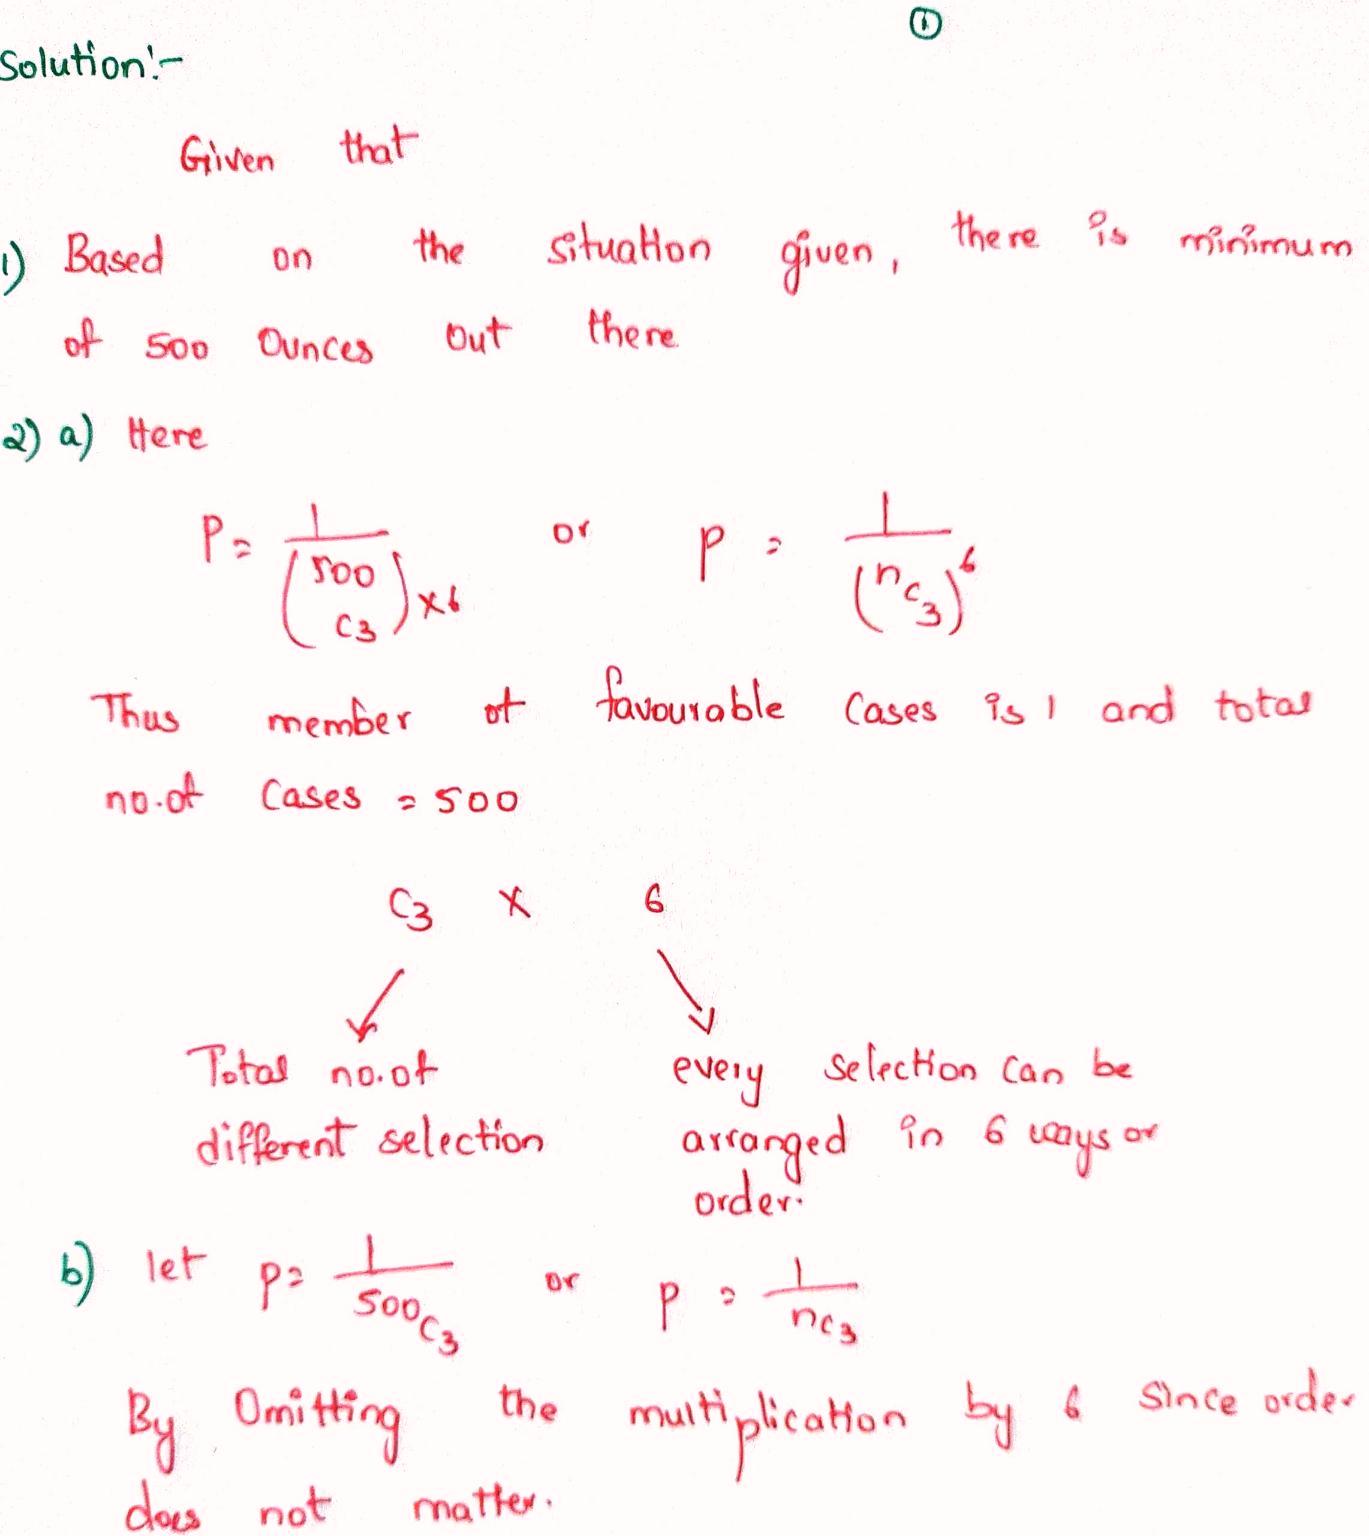 ①
Solution:-
Given that
1) Based on the situation given, there is minimum
of 500 Ounces out there
2) a) Here
P = 1/(500 C3) x 6 or P = 1/(nC3)^6
Thus member of favourable cases is 1 and total
no.of cases = 500
C3 x 6
Total no.of every selection can be
different selection arranged in 6 ways or
order.
b) let P = 1/500C3 or P = 1/nC3
By Omitting the multiplication by 6 since order
does not matter.